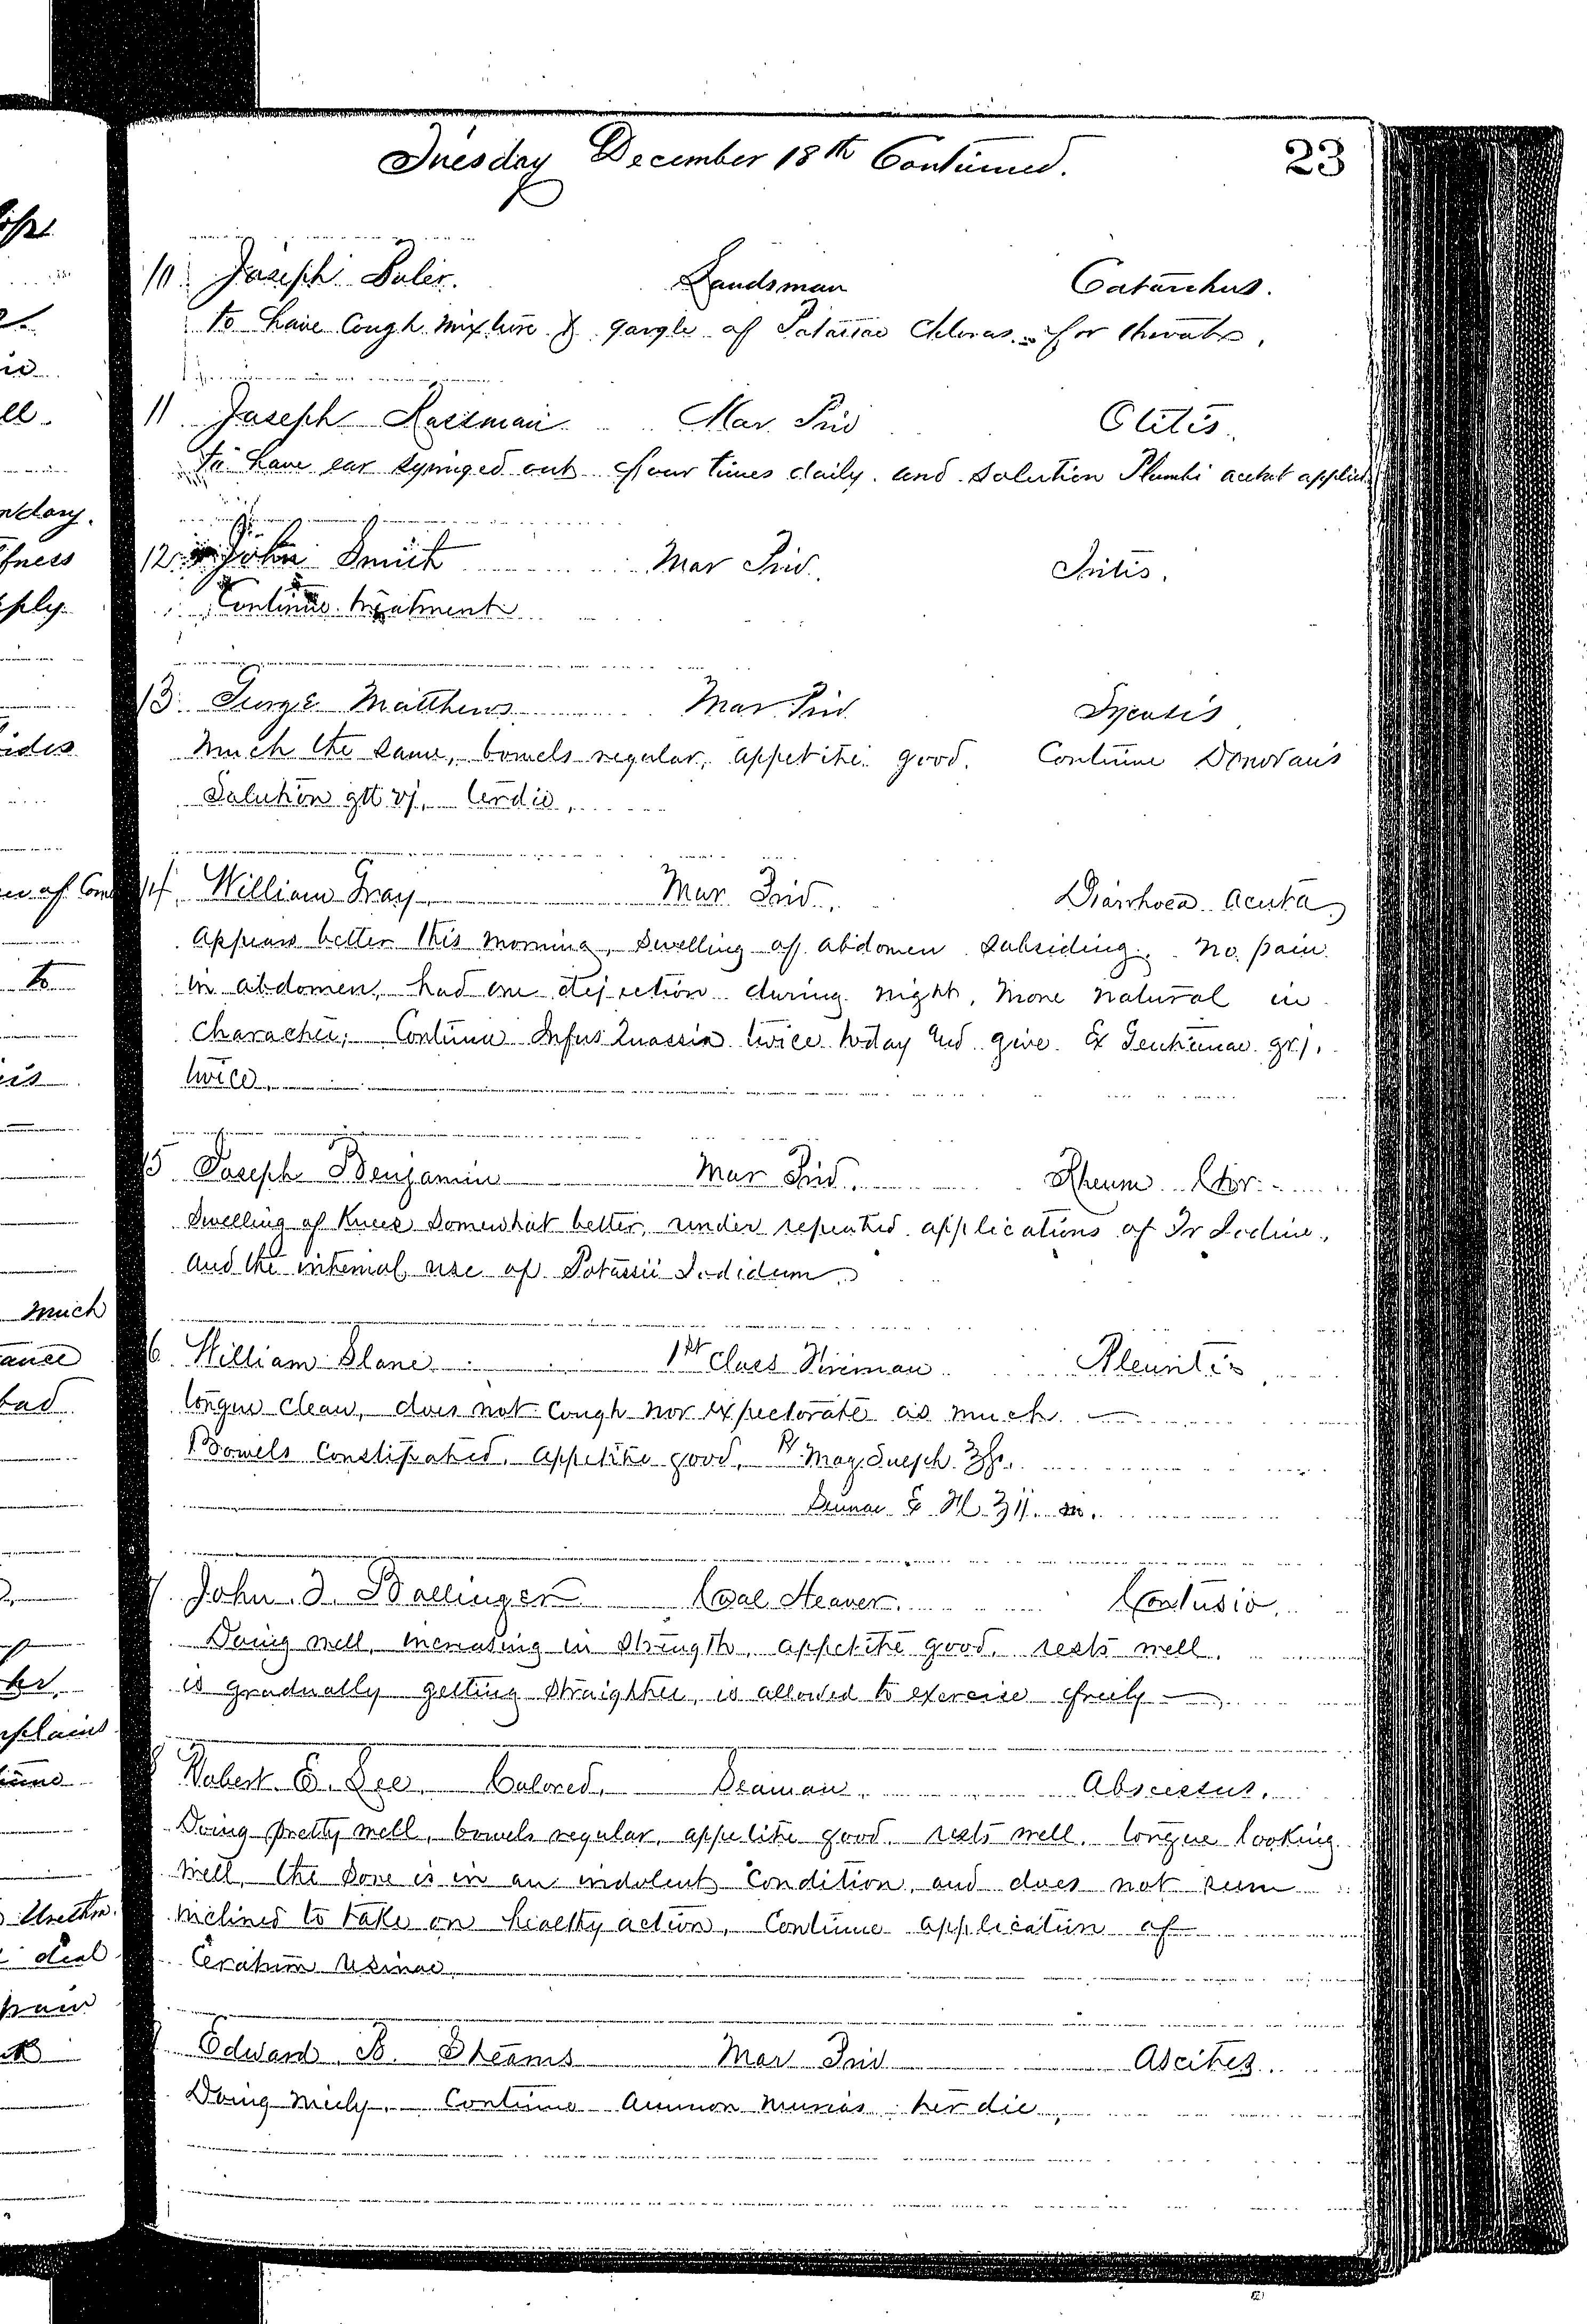 Tuesday December 18th Continued.
23
10 Joseph Buler. Landsman Catarrhus.
To have Cough Mixture & gargle of Potassae Chloras. for throat.
11 Joseph Mar. Priv Otitis.
To have ear syringed out four times daily. and solution Plumbi acetat applied
12 John Smith Mar Priv. Iritis.
Continue treatment
13. George Matthews Mar. Priv Sycosis
Much the same, bowels regular, appetite good. Continue Donovan's
Solution gtt vj. ter die.
14. William Gray Mar. Priv. Diarrhoea Acuta
Appears better this morning, swelling of abdomen subsiding. No pain
in abdomen, had one dejection during night, more natural in
character; Continue Infus Quassia twice today and give Ex Gentianae gr j.
twice.
15 Joseph Benjamin Mar Priv. Rheum. Chr.
Swelling of Knees somewhat better, under repeated applications of Tr Iodine,
and the internal use of Potassii Iodidum
6. William Slane 1st Class Fireman Pleuritis
Tongue clean, does not cough nor expectorate as much
Bowels Constipated. appetite good, ℞ Mag. Sulph. ℥ss.
Sennae ʒij. m.
7 John. J. Ballinger Coal Heaver. Contusio.
Doing well, increasing in strength, appetite good, rests well.
is gradually getting straighter, is allowed to exercise freely
8 Robert E. Lee. Colored. Seaman. Abscessus.
Doing pretty well, bowels regular, appetite good. rests well. tongue looking
well, the sore is in an indolent condition, and does not seem
inclined to take on healthy action, Continue application of
Ceratum resinae
Edward B. Stearns Mar Priv Ascites.
Doing nicely. Continue Ammon murias ter die.